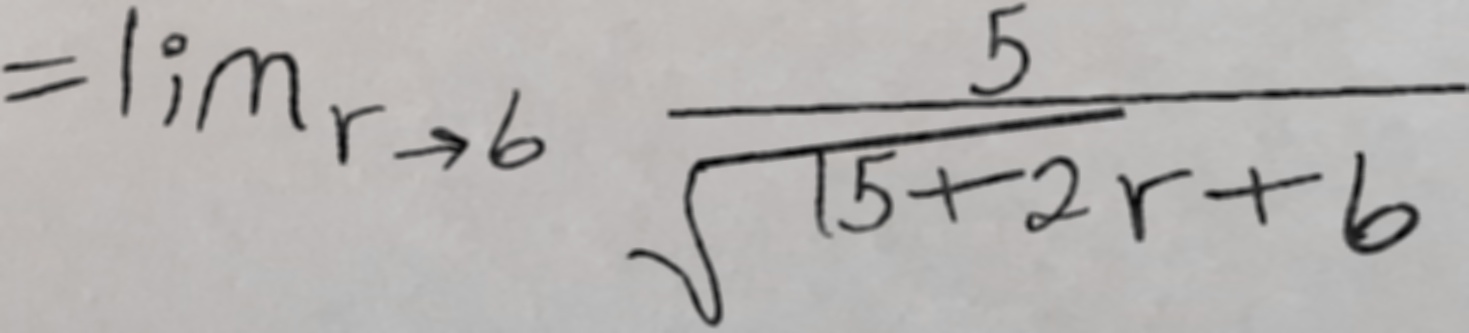 = lim_{r→6} \frac{5}{\sqrt{15+2r}+6}